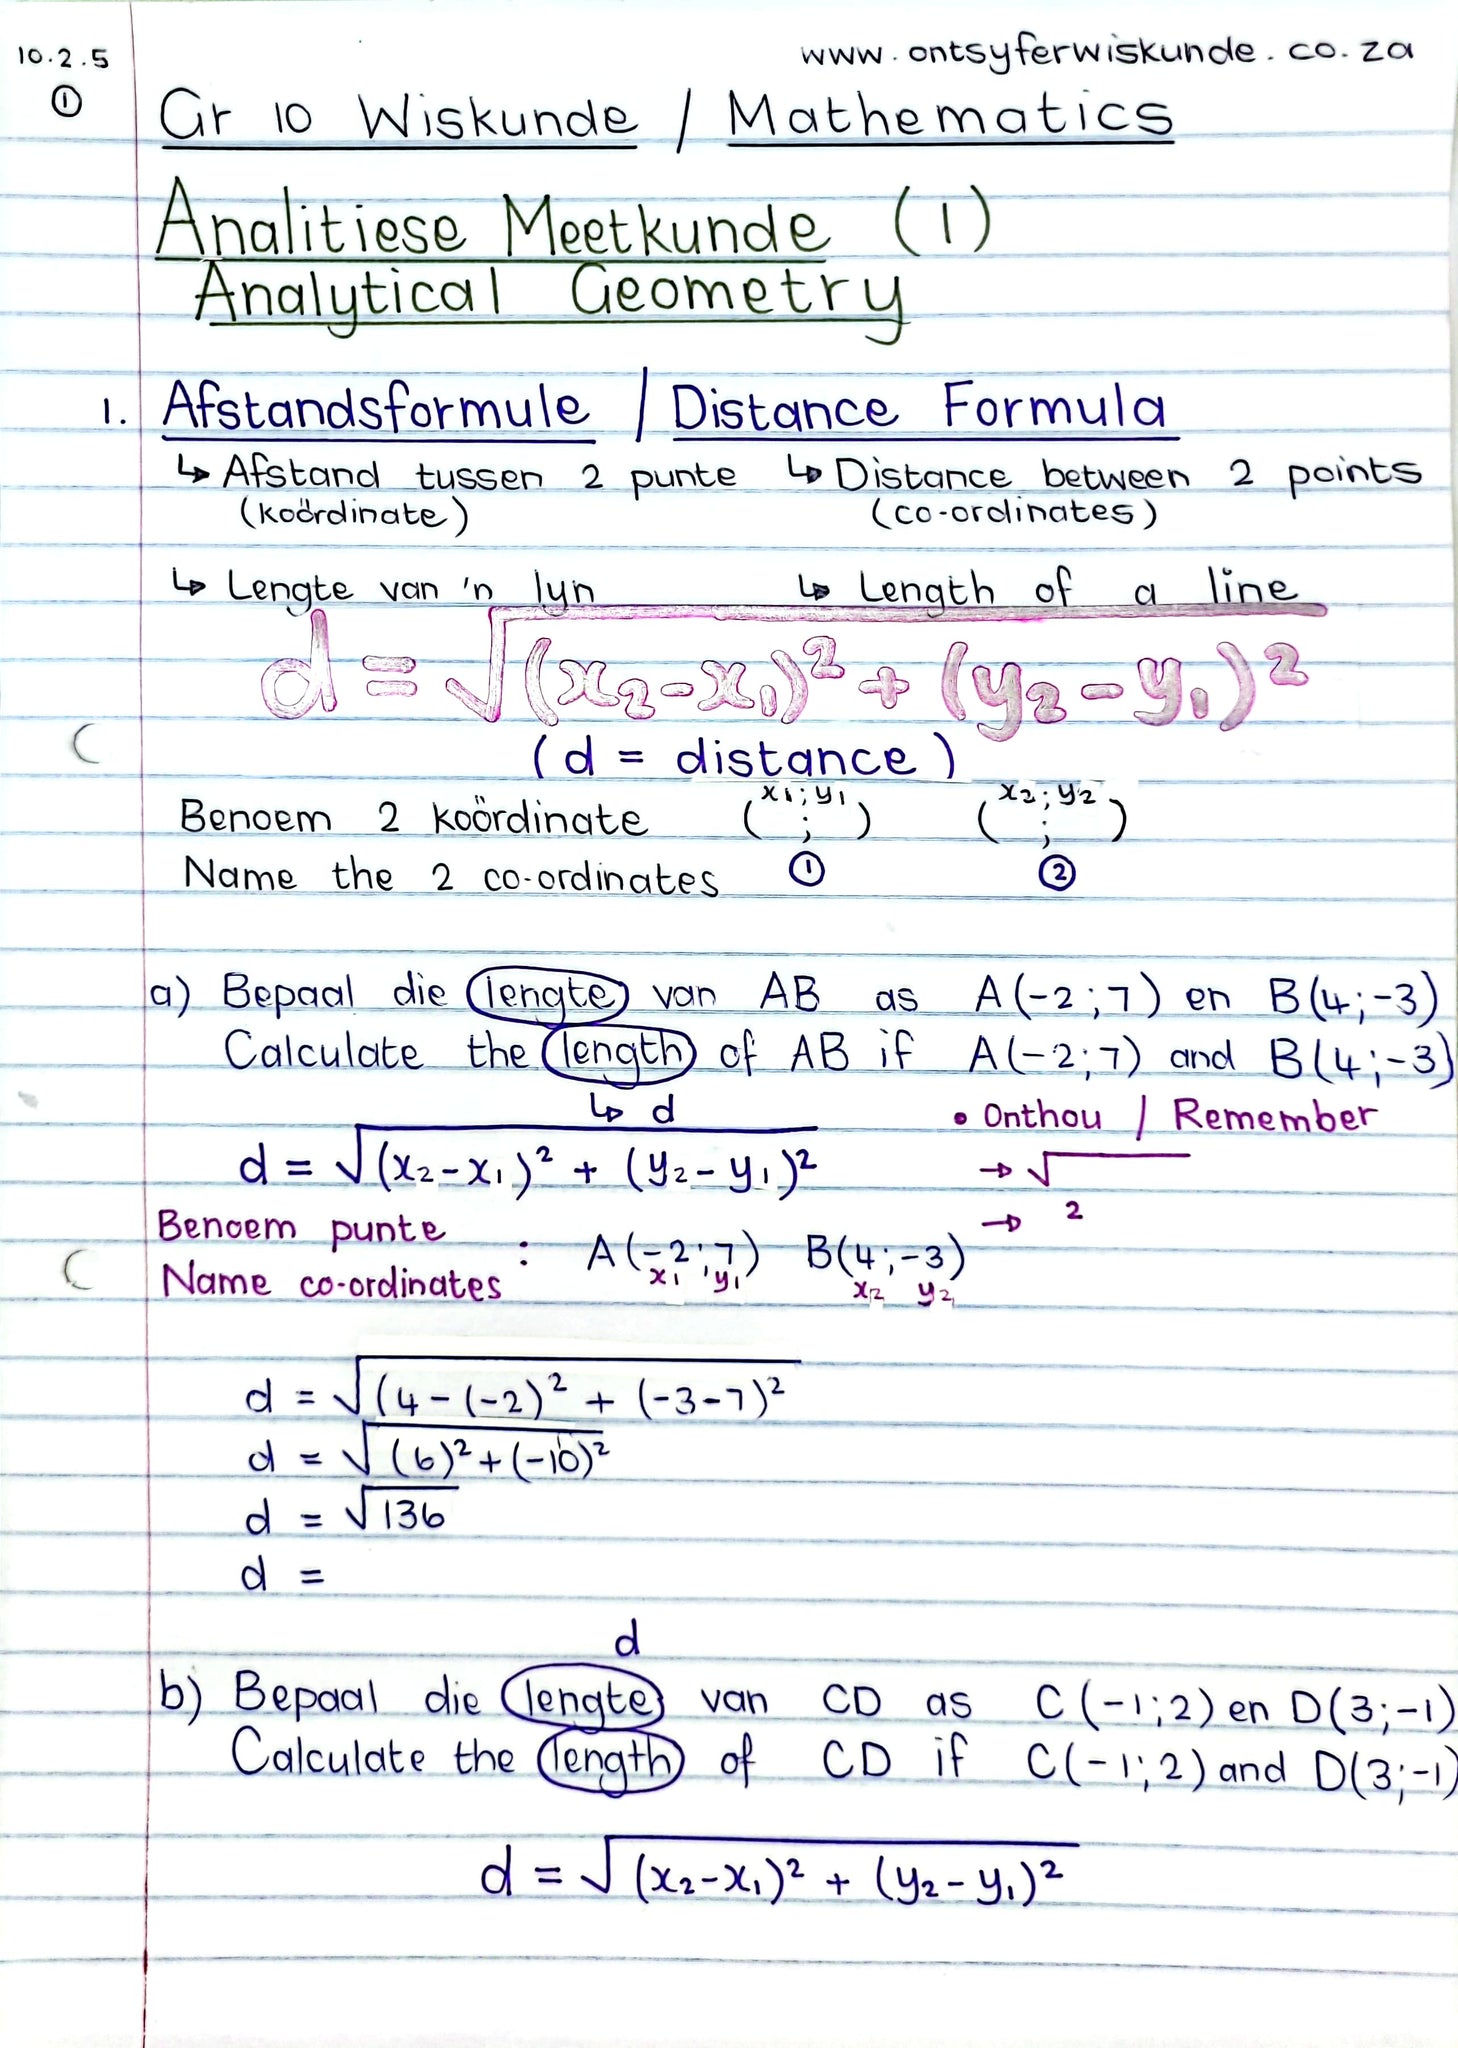 10.2.5
www.ontsyferwiskunde.co.za
①
Gr 10 Wiskunde / Mathematics
Analitiese Meetkunde (1)
Analytical Geometry
1. Afstandsformule / Distance Formula
↳ Afstand tussen 2 punte ↳ Distance between 2 points
(koördinate) (co-ordinates)
↳ Lengte van 'n lyn ↳ Length of a line
d = √(x₂-x₁)² + (y₂-y₁)²
(d = distance)
x₁;y₁ x₂;y₂
Benoem 2 koördinate ( ; ) ( ; )
Name the 2 co-ordinates ① ②
a) Bepaal die lengte van AB as A(-2;7) en B(4;-3)
Calculate the length of AB if A(-2;7) and B(4;-3)
↳ d • Onthou / Remember
d = √(x₂-x₁)² + (y₂-y₁)² → √
Benoem punte → 2
Name co-ordinates : A(-2;7) B(4;-3)
x₁ y₁ x₂ y₂
d = √(4-(-2)² + (-3-7)²
d = √(6)²+(-10)²
d = √136
d =
d
b) Bepaal die lengte van CD as C(-1;2) en D(3;-1)
Calculate the length of CD if C(-1;2) and D(3;-1)
d = √(x₂-x₁)² + (y₂-y₁)²